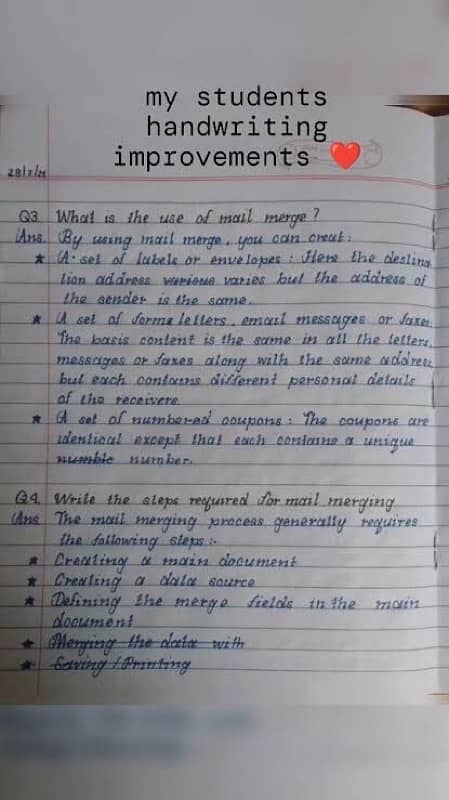 my students
handwriting
improvements ❤️
Q3. What is the use of mail merge?
Ans. By using mail merge, you can creat:
★ A set of labels or envelopes: Here the destina
tion address various varies but the address of
the sender is the same.
★ A set of forms letters, email messages or faxes:
The basis content is the same in all the letters,
messages or faxes along with the same address
but each contains different personal details
of the receivers.
★ A set of numbered coupons: The coupons are
identical except that each contains a unique
numble number.
Q4. Write the steps required for mail merging
Ans The mail merging process generally requires
the following steps:-
★ Creating a main document
★ Creating a data source
★ Defining the merge fields in the main
document
★ Merging the data with
★ Saving / Printing